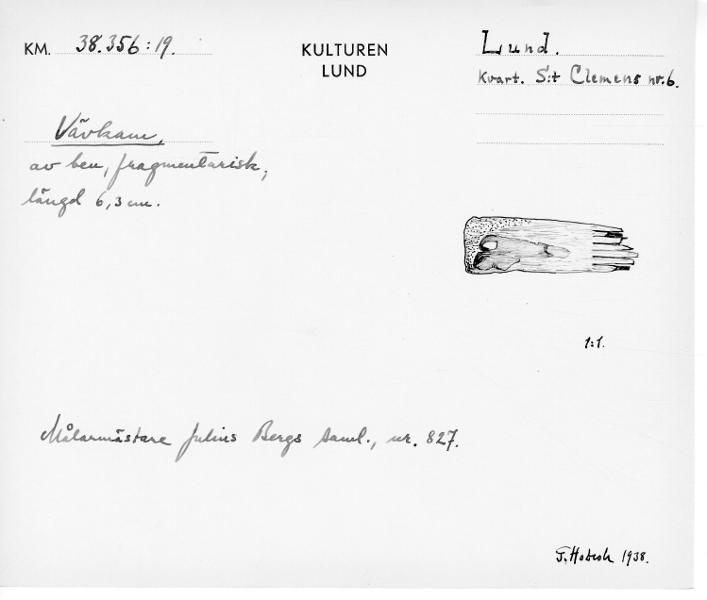 KM. 38.356:19.
KULTUREN
LUND
Lund.
Kvart. S:t Clemens nr. 6.
Vävkam,
av ben, fragmentarisk,
längd 6,3 cm.
1:1.
Målarmästare Julius Bergs saml., nr. 827.
1938.